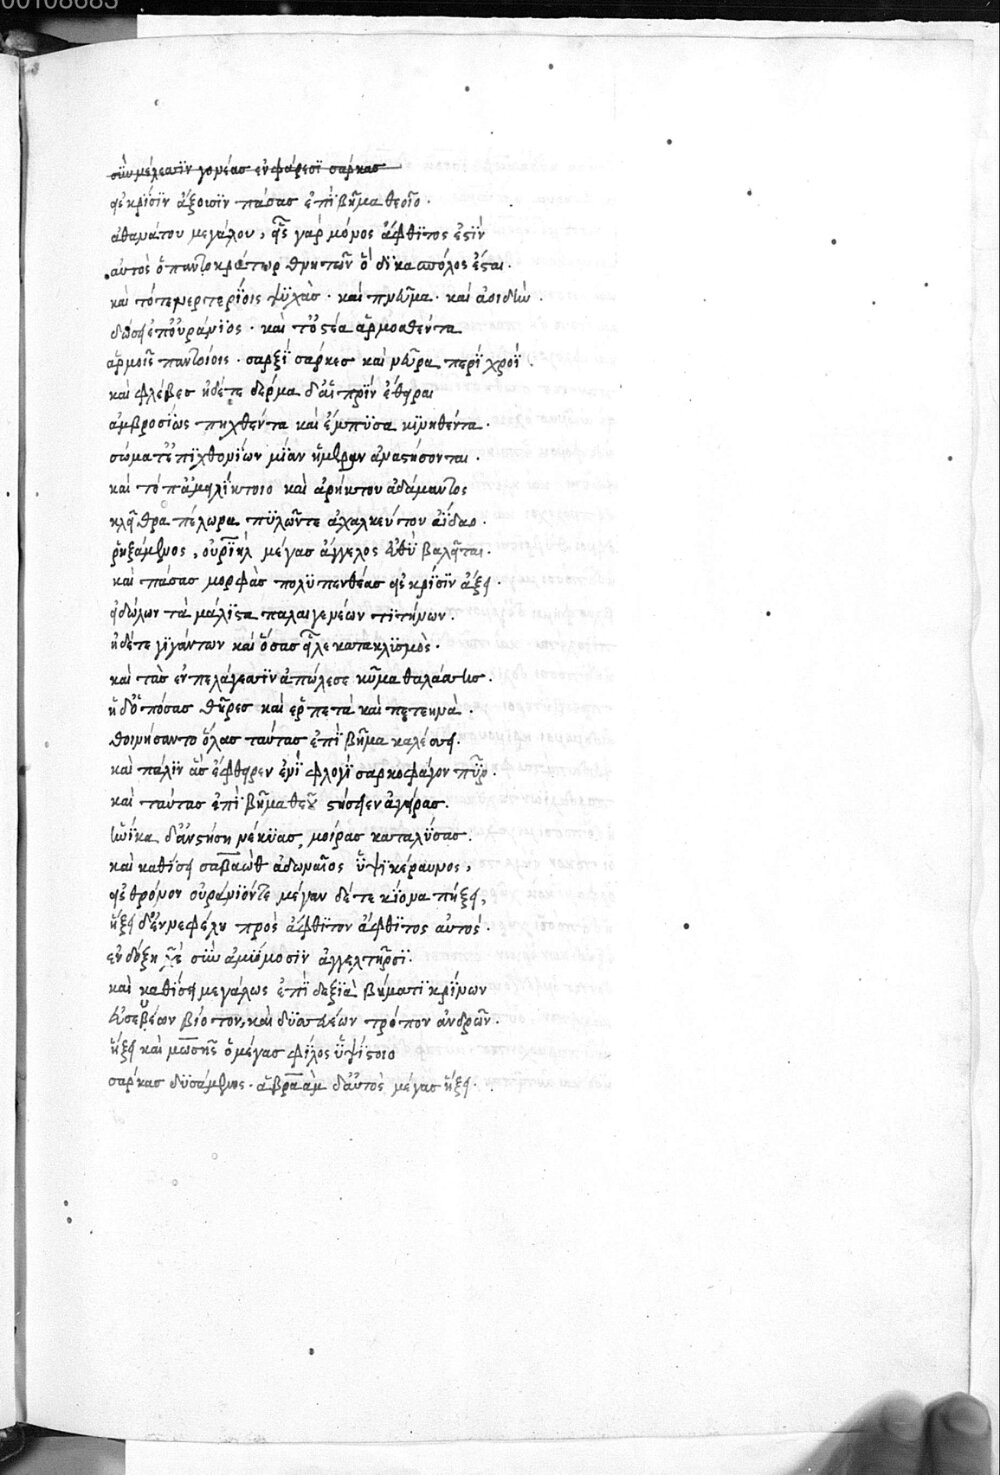 00108683
σὺν μελέεσσϊν γονέασ ἐνφάρεσϊ σάρκασ
εἰσ κρίσϊν ἄξουσϊν πάσασ ἐπὶ βῆμα θεοῖο·
ἀθανάτου μεγάλου, εἷς γὰρ μόνος ἄφθϊτος ἐστὶν
αὐτὸς ὁ παντοκράτωρ θνητῶν ὃ δϊκασπόλος ἔσται·
καὶ τότε νερτερίοις ψϋχὰσ· καὶ πνεῦμα· καὶ αὐδὴν·
δώσει ἐπουράνϊος· καὶ τ' ὀστέα ἁρμοσθέντα
ἁρμοῖς παντοίοις· σαρξὶ σάρκεσ καὶ νεῦρα περὶ χροῒ·
καὶ φλέβεσ ἠδέτε δέρμα δ' αἱ πρὶν ἔθειραι
ἀμβροσίως πηχθέντα καὶ ἔμπϋσα κϊνηθέντα·
σώματ' ἐπϊχθονίων μίαν ἤμεραν ἀναστήσονται·
καὶ τότ' ἀμειλίκτοιο καὶ ἀρήκτου ἀδάμαντος
κλεῖθρα πέλωρα πϋλῶντε ἀχαλκεύτου ἀΐδαο·
ῥηξάμενος, οὐρϊὴλ μέγασ ἄγγελος εὐθὺ βαλεῖται·
καὶ πάσασ μορφὰσ πολϋπενθέασ εἰσ κρίσϊν ἄξει·
εἰδώλων τὰ μάλϊστα παλαιγενέων τιτήνων·
ἠδέτε γϊγάντων καὶ ὅσασ εἷλε κατακλϊσμὸς·
καὶ τὰσ ἐν πελάγεσσϊν ἀπώλεσε κῦμα θαλάσσησ·
ἠδ' ὁπόσασ θῆρεσ καὶ ἑρπετὰ καὶ πετεηνὰ·
θοινήσαντο ὅλασ ταύτασ ἐπὶ βῆμα καλέσσει·
καὶ πάλϊν ἃσ ἔφθειρεν ἐνὶ φλογὶ σαρκοφάγον πῦρ·
καὶ ταύτασ ἐπὶ βῆμα θεοῦ στήσειεν ἀγείρασ·
ἡνίκα δ' ἀνστήση νέκϋασ, μοίρασ καταλύσασ·
καὶ καθίσει σαβαὼθ ἀδωναῖος ὑψϊκέραυνος,
εἰσ θρόνον οὐράνϊόντε μέγαν δέτε κίονα πήξει,
ἥξει δ' ἐν νεφέλη πρὸς ἄφθϊτον ἄφθϊτος αὐτὸς·
ἐν δόξη χ̅ς̅ σὺν ἀμϋμοσϊν ἀγγελτῆρσϊ·
καὶ καθίσει μεγάλως ἐπὶ δεξϊὰ βήματϊ κρίνων
εὐσεβέων βίοτον, καὶ δϋσσεβέων τρόπον ἀνδρῶν·
ἥξει καὶ μωσῆς ὁ μέγασ φίλος ὑψίστοιο
σάρκασ δϋσάμενος· ἀβραὰμ δ' αὐτὸς μέγασ ἥξει·